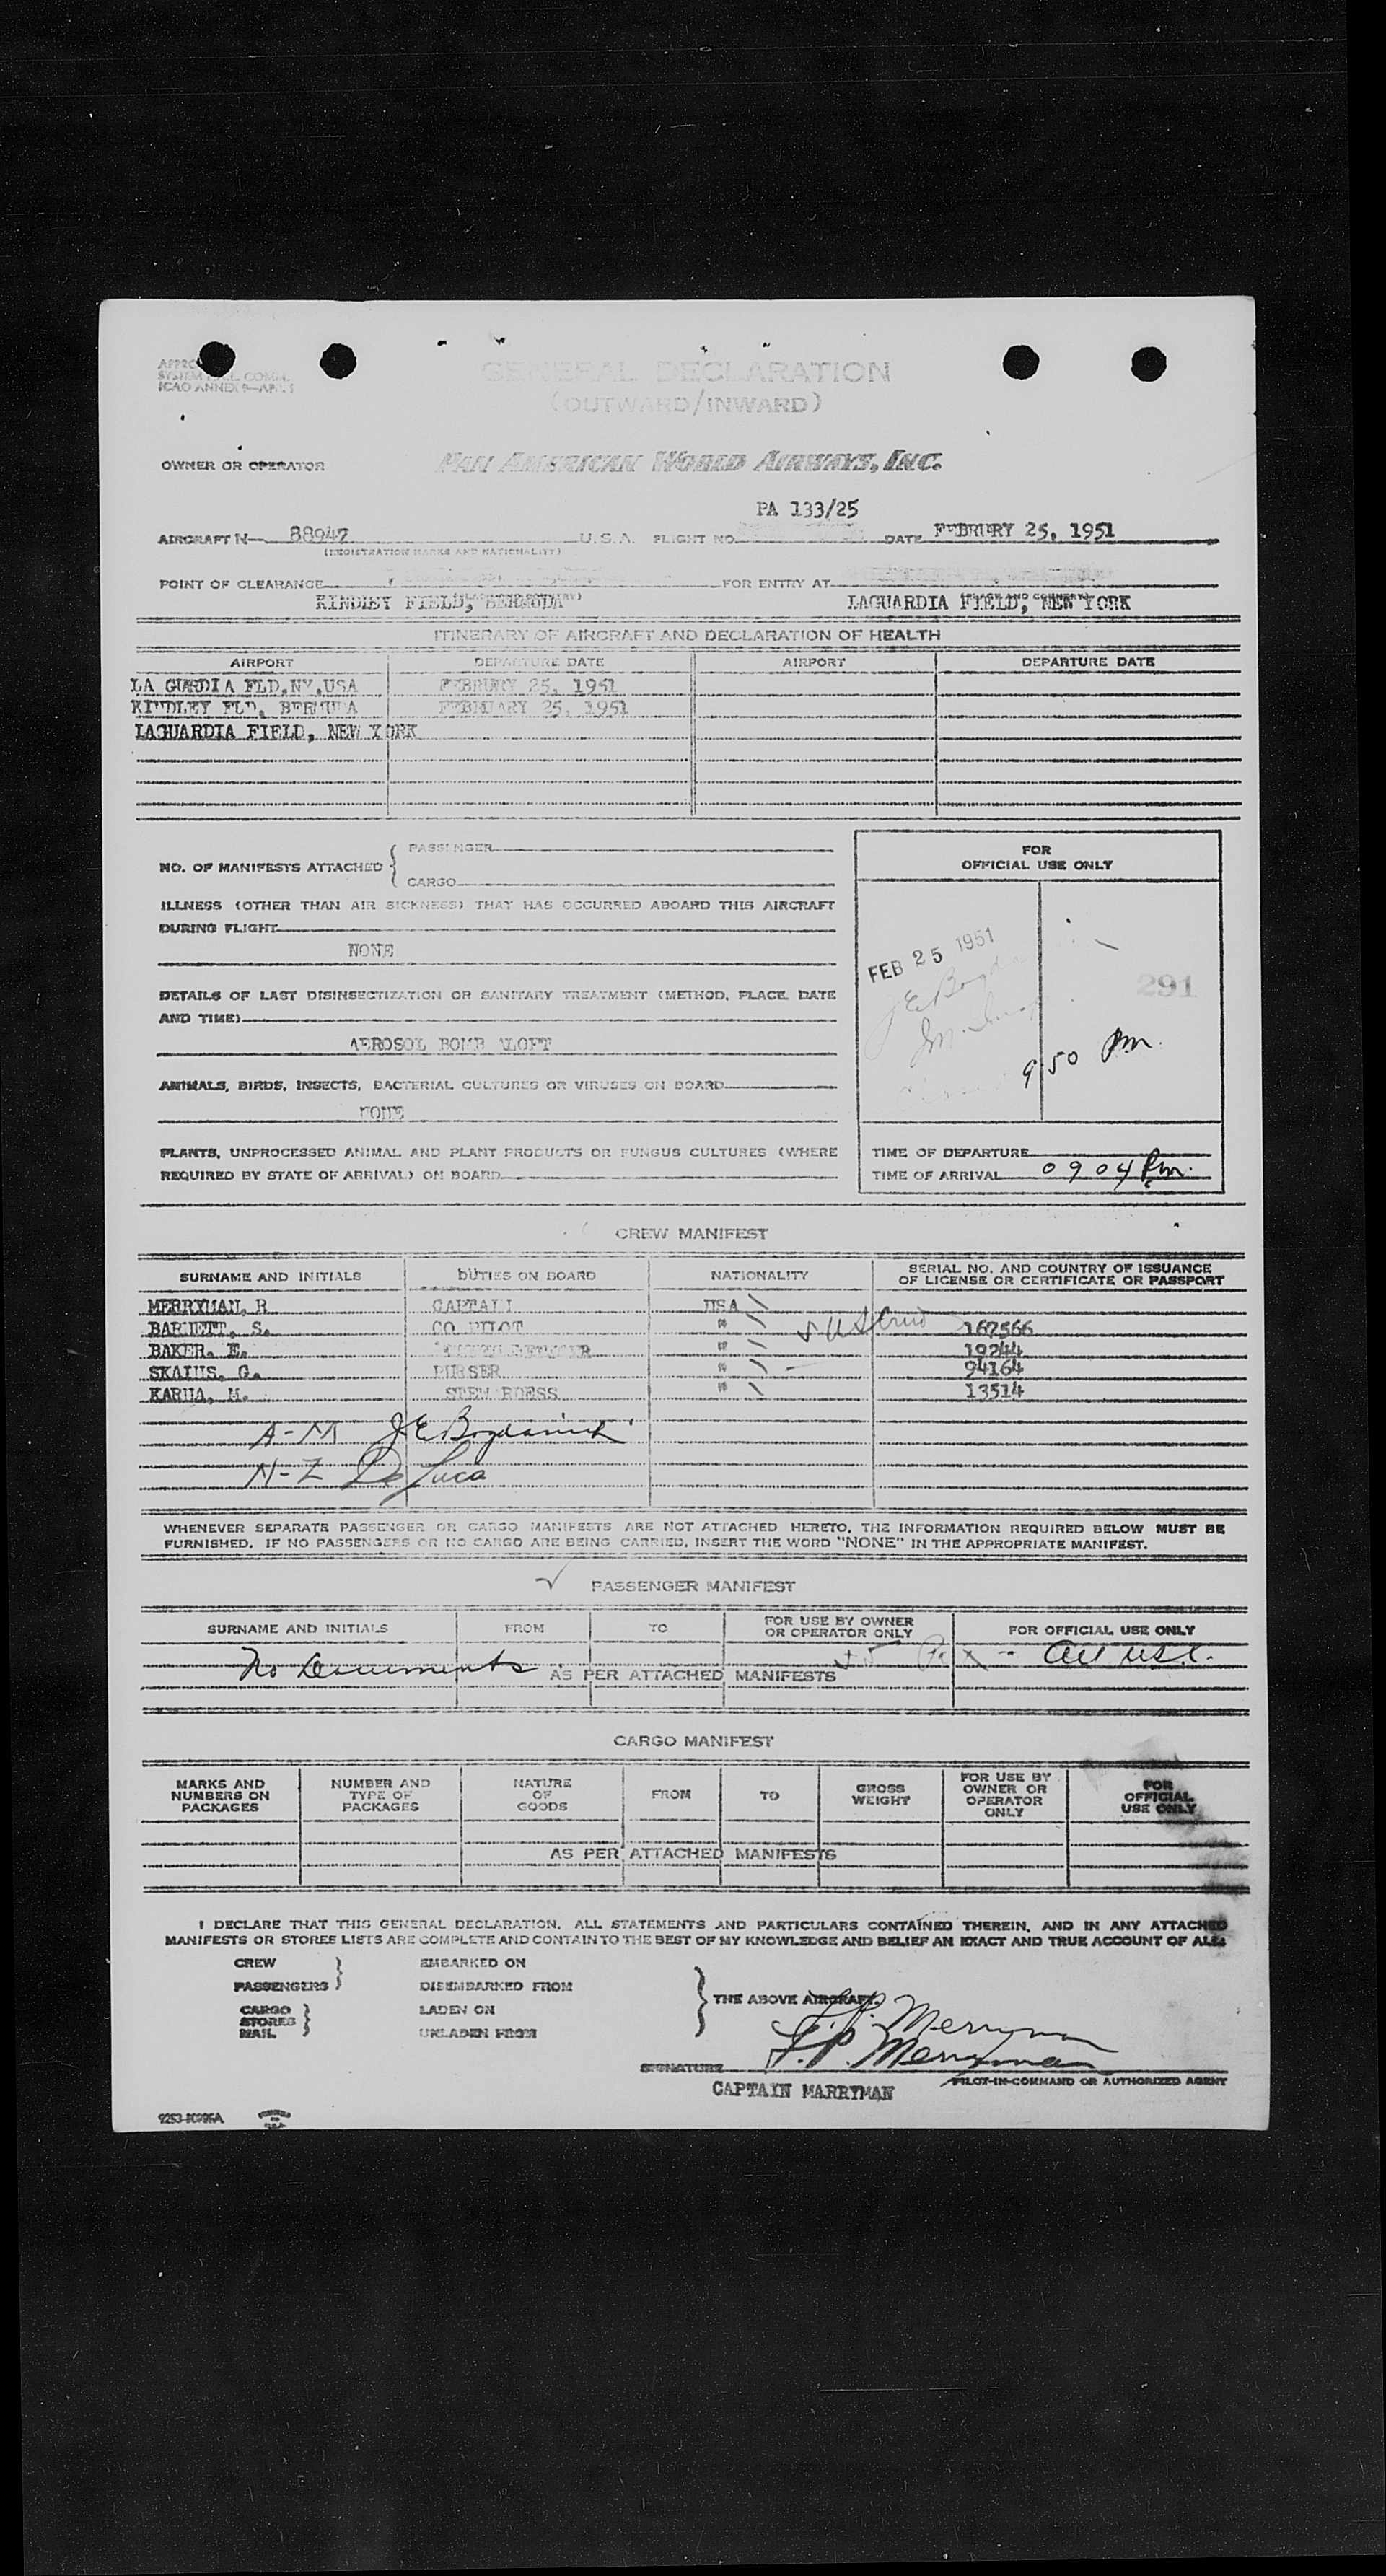 GENERAL DECLARATION
(OUTWARD/INWARD)
OWNER OR OPERATOR PAN AMERICAN WORLD AIRWAYS, INC.
PA 133/25
AIRCRAFT N— 88947 U.S.A. FLIGHT NO. DATE FEBRURY 25, 1951
(REGISTRATION MARKS AND NATIONALITY)
POINT OF CLEARANCE FOR ENTRY AT
KINDLEY FIELD, BERMUDA LAGUARDIA FIELD, NEW YORK
ITINERARY OF AIRCRAFT AND DECLARATION OF HEALTH
AIRPORT DEPARTURE DATE AIRPORT DEPARTURE DATE
LA GUARDIA FLD,NY,USA FEBRURY 25, 1951
KINDLEY FLD, BERMUDA FEBRUARY 25, 1951
LAGUARDIA FIELD, NEW YORK
NO. OF MANIFESTS ATTACHED { PASSENGER
CARGO
ILLNESS (OTHER THAN AIR SICKNESS) THAT HAS OCCURRED ABOARD THIS AIRCRAFT
DURING FLIGHT
NONE
DETAILS OF LAST DISINSECTIZATION OR SANITARY TREATMENT (METHOD, PLACE, DATE
AND TIME)
AEROSOL BOMB ALOFT
ANIMALS, BIRDS, INSECTS, BACTERIAL CULTURES OR VIRUSES ON BOARD
NONE
PLANTS, UNPROCESSED ANIMAL AND PLANT PRODUCTS OR FUNGUS CULTURES (WHERE
REQUIRED BY STATE OF ARRIVAL) ON BOARD
FOR
OFFICIAL USE ONLY
FEB 25 1951
291
9 50 Pm.
TIME OF DEPARTURE
TIME OF ARRIVAL 0904 Pm.
CREW MANIFEST
SURNAME AND INITIALS DUTIES ON BOARD NATIONALITY SERIAL NO. AND COUNTRY OF ISSUANCE
OF LICENSE OR CERTIFICATE OR PASSPORT
MERRYMAN, R CAPTAIN USA
BARNETT, S. CO PILOT " 167566
BAKER, E. " 19244
SKAIUS, G. PURSER " 94164
KARUA, M. STEWARDESS " 13514
A-M J E Bogdanich
N-Z De Luca
WHENEVER SEPARATE PASSENGER OR CARGO MANIFESTS ARE NOT ATTACHED HERETO, THE INFORMATION REQUIRED BELOW MUST BE
FURNISHED. IF NO PASSENGERS OR NO CARGO ARE BEING CARRIED, INSERT THE WORD "NONE" IN THE APPROPRIATE MANIFEST.
PASSENGER MANIFEST
SURNAME AND INITIALS FROM TO FOR USE BY OWNER
OR OPERATOR ONLY FOR OFFICIAL USE ONLY
No Documents All USC.
AS PER ATTACHED MANIFESTS
CARGO MANIFEST
MARKS AND
NUMBERS ON
PACKAGES NUMBER AND
TYPE OF
PACKAGES NATURE
OF
GOODS FROM TO GROSS
WEIGHT FOR USE BY
OWNER OR
OPERATOR
ONLY FOR
OFFICIAL
USE ONLY
AS PER ATTACHED MANIFESTS
I DECLARE THAT THIS GENERAL DECLARATION, ALL STATEMENTS AND PARTICULARS CONTAINED THEREIN, AND IN ANY ATTACHED
MANIFESTS OR STORES LISTS ARE COMPLETE AND CONTAIN TO THE BEST OF MY KNOWLEDGE AND BELIEF AN EXACT AND TRUE ACCOUNT OF ALL:
CREW } EMBARKED ON
PASSENGERS DISEMBARKED FROM
CARGO LADEN ON
STORES }
MAIL UNLADEN FROM
} THE ABOVE AIRCRAFT.
F.P. Merryman
SIGNATURE F.P. Merryman
CAPTAIN MARRYMAN PILOT-IN-COMMAND OR AUTHORIZED AGENT